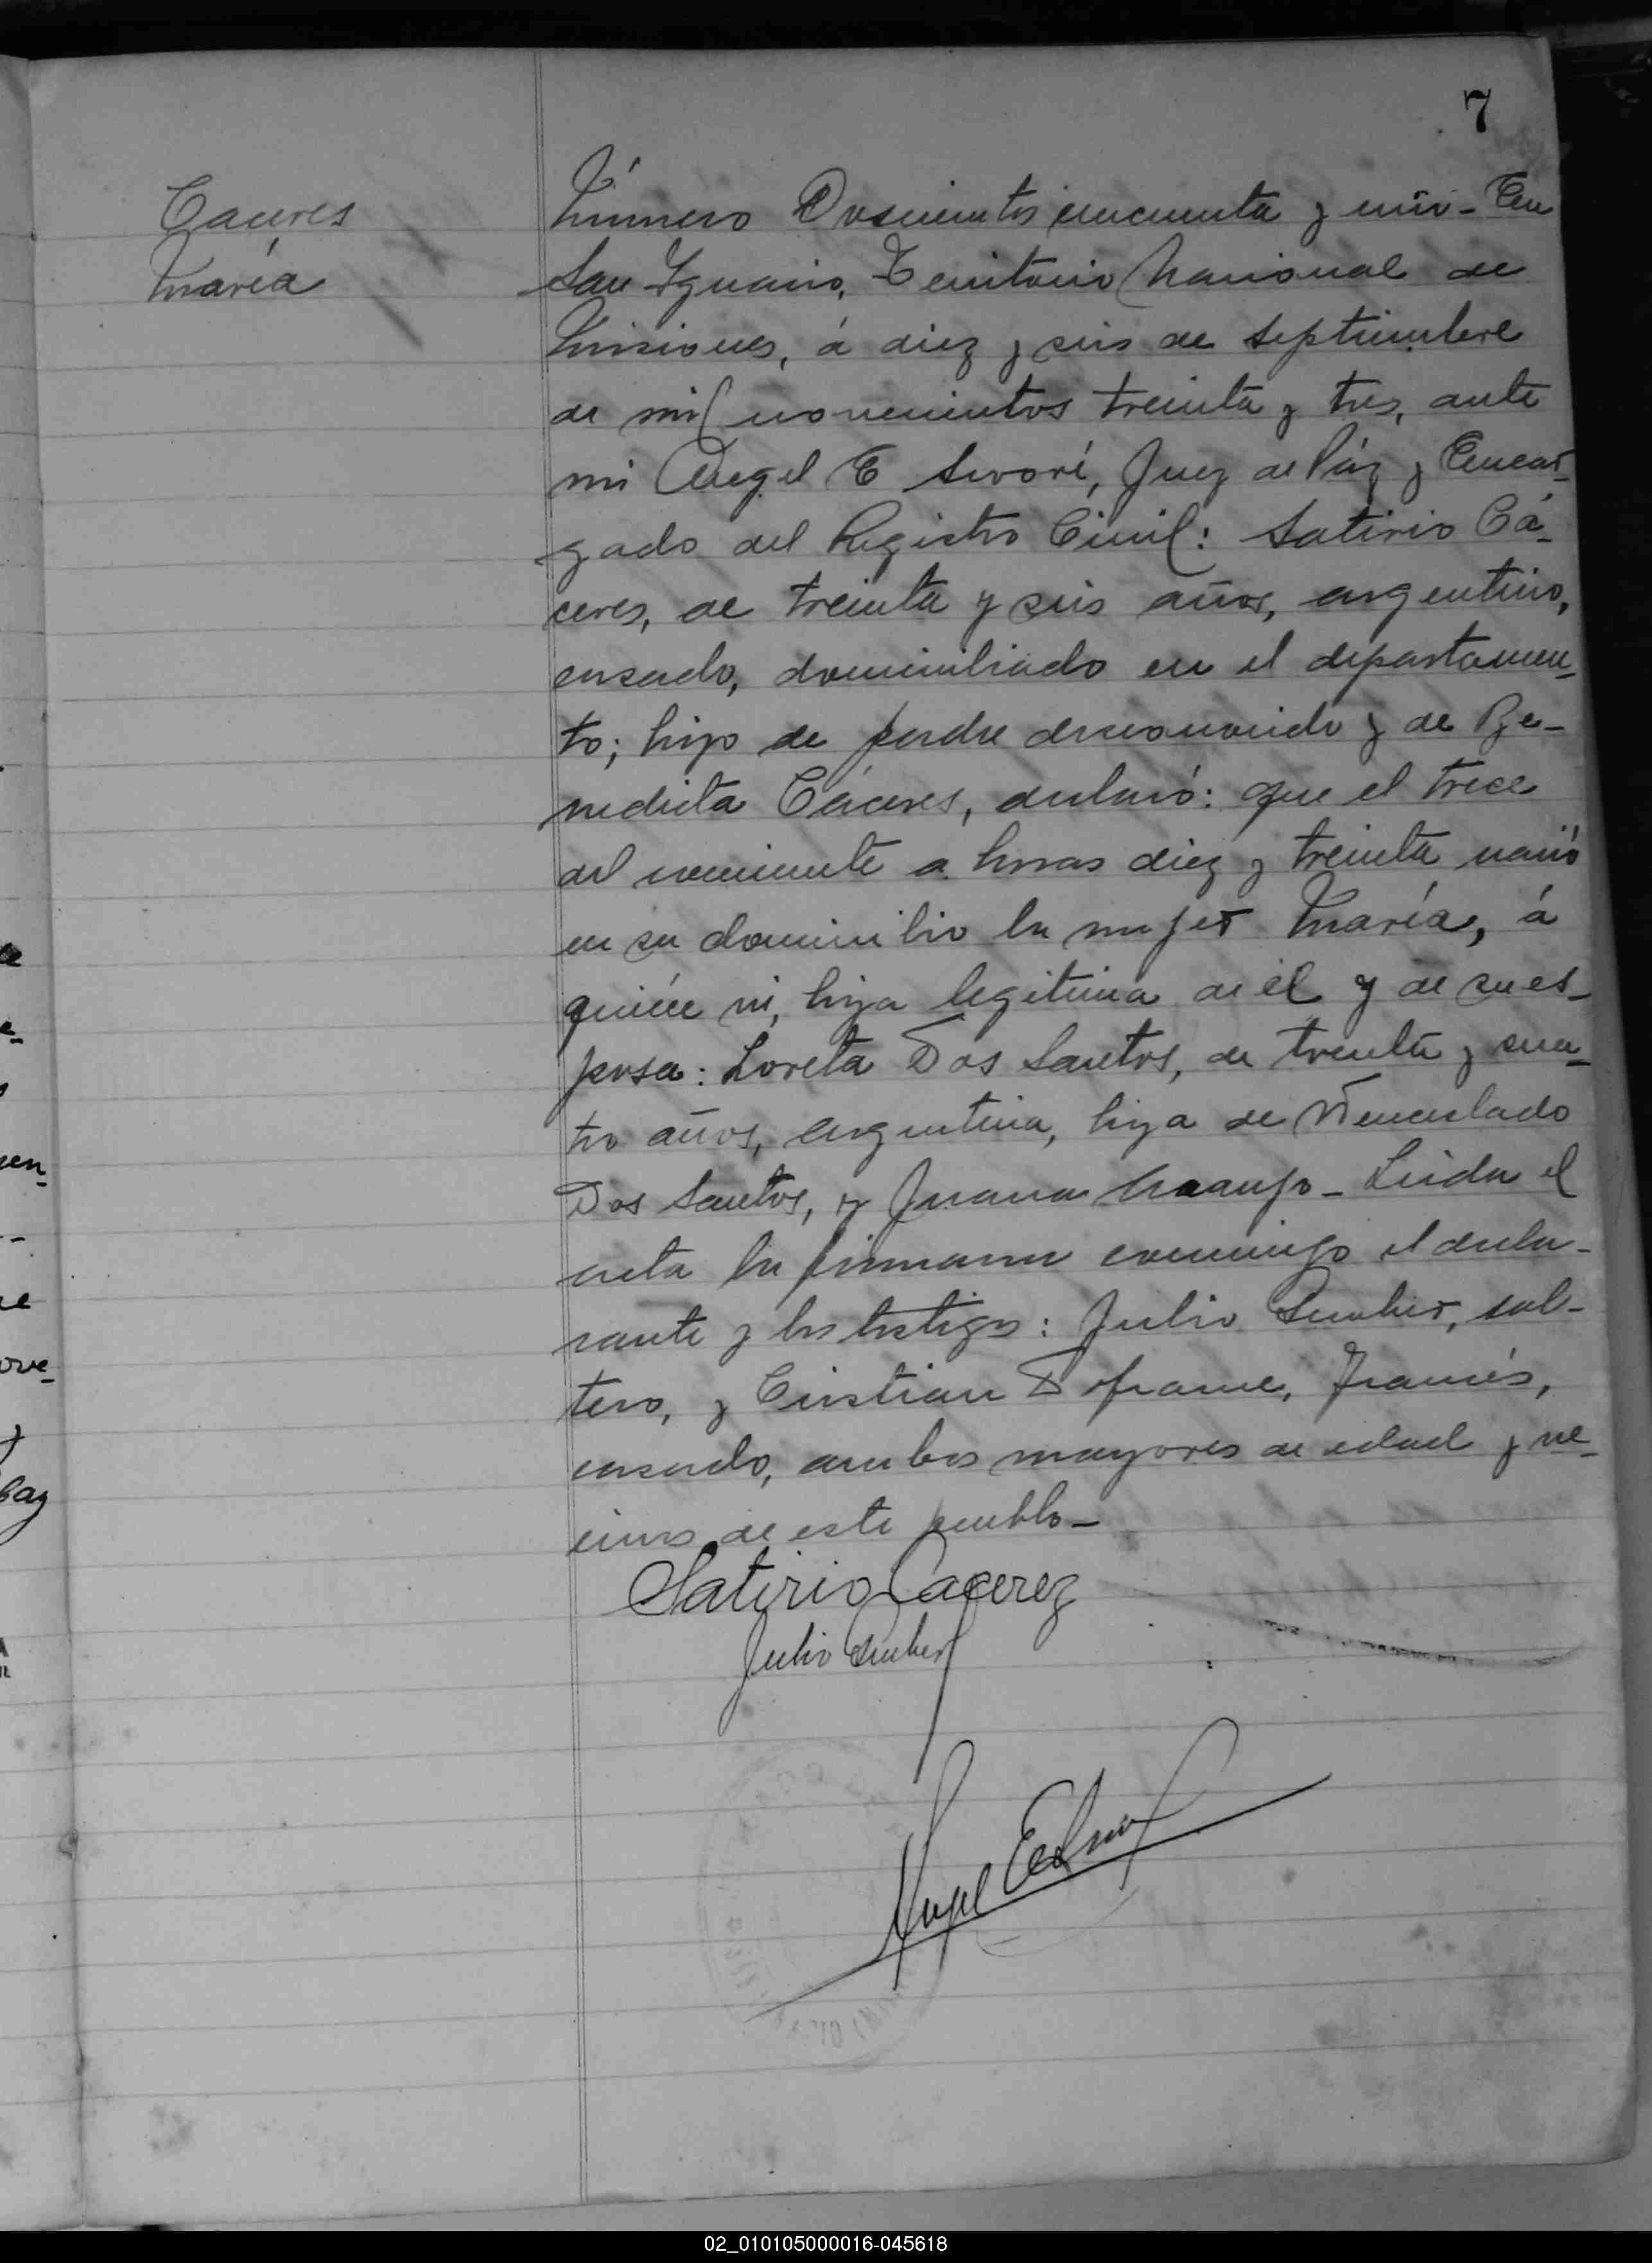 7
Caceres
María
Número Doscientos cincuenta y uno - En
San Ignacio, Territorio Nacional de
Misiones, á diez y seis de Septiembre
de mil novecientos treinta y tres, ante
mi Angel E Sivori, Juez de Páz y Encar-
gado del Registro Civil: Satirio Cá-
ceres, de treinta y seis años, argentino,
casado, domiciliado en el departamen-
to; hijo de padre desconocido y de Be-
nedicta Cáceres, declaró: que el trece
del corriente a horas diez y treinta nació
en su domicilio la mujer María, á
quién vi, hija legitima de él y de su es-
posa: Loreta Dos Santos, de treinta y cua-
tro años, argentina, hija de Wenceslado
Dos Santos, y Juana Araujo - Leida el
acta la firmaron conmigo el decla-
rante y los testigos: Julio, sol-
tero, y Cristian, Francés,
casado, ambos mayores de edad y ve-
cinos de este pueblo -
Satirio Cacerez
Julio
Angel E Sivori
02_010105000016-045618